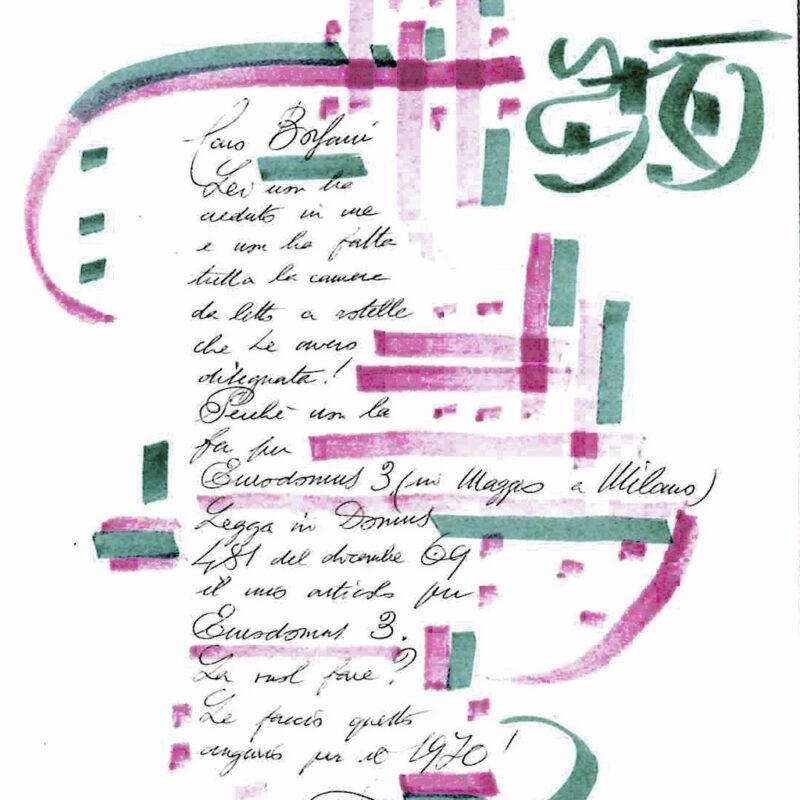 Caro Bonfanti
Lei non ha
creduto in me
e non ha fatto
tutta la camera
da letto a rotelle
che Le avevo
disegnata!
Perché non la
fa per
Eurodomus 3 (in Maggio a Milano)
Legga in Domus
481 del dicembre 69
il mio articolo per
Eurodomus 3.
La vuol fare?
Le faccio questo
augurio per il 1970!